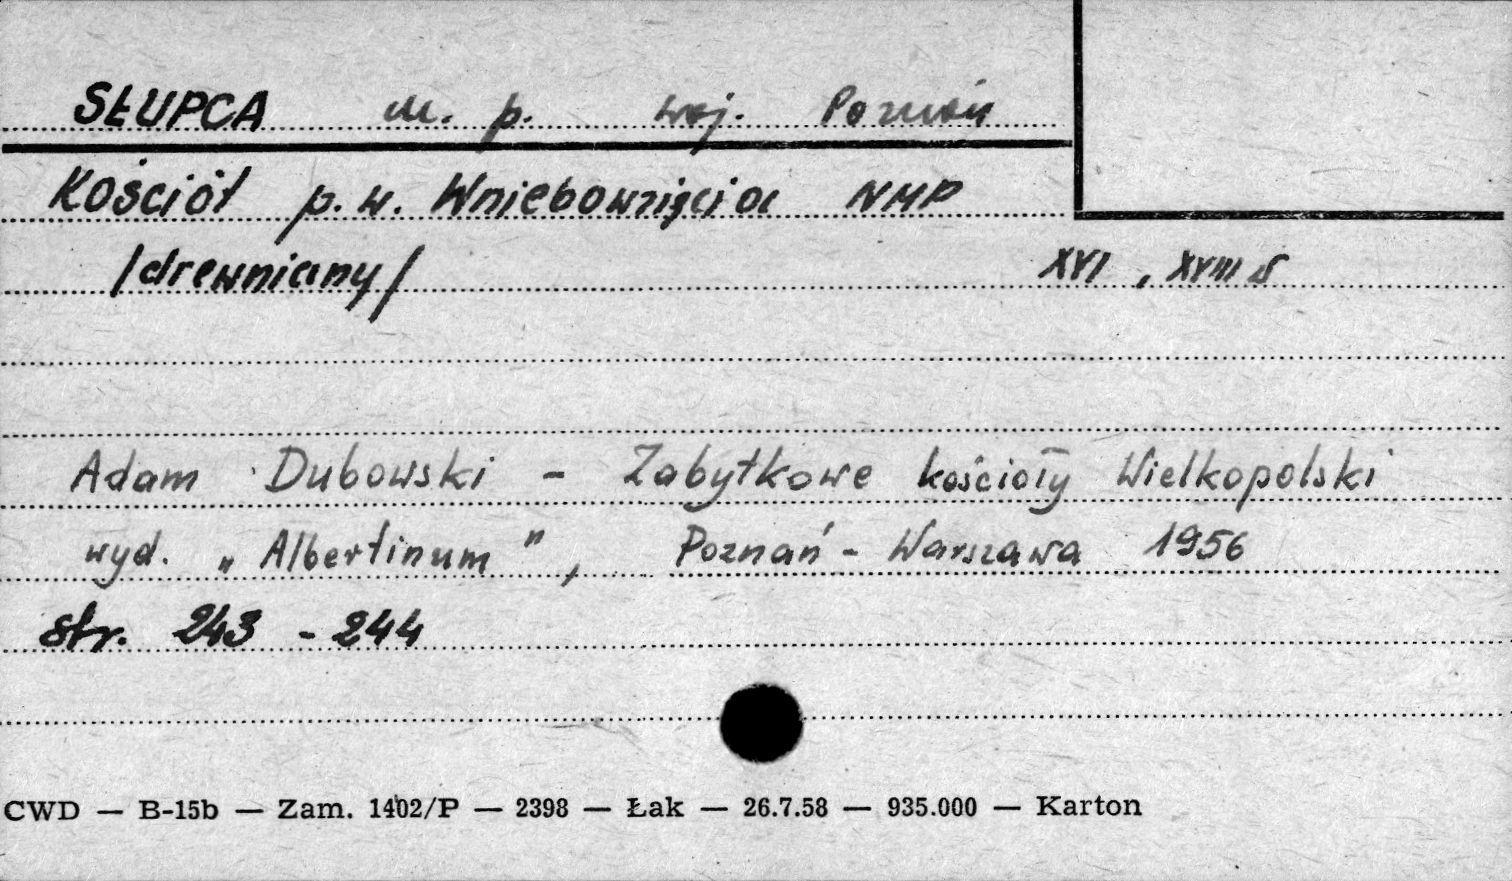 SŁUPCA m. p. woj. Poznań
Kościół p.w. Wniebowzięcia NMP
/drewniany/ XVI, XVIII w
Adam Dubowski - Zabytkowe kościoły Wielkopolski
wyd. „Albertinum", Poznań - Warszawa 1956
str. 243 - 244
CWD — B-15b — Zam. 1402/P — 2398 — Łak — 26.7.58 — 935.000 — Karton